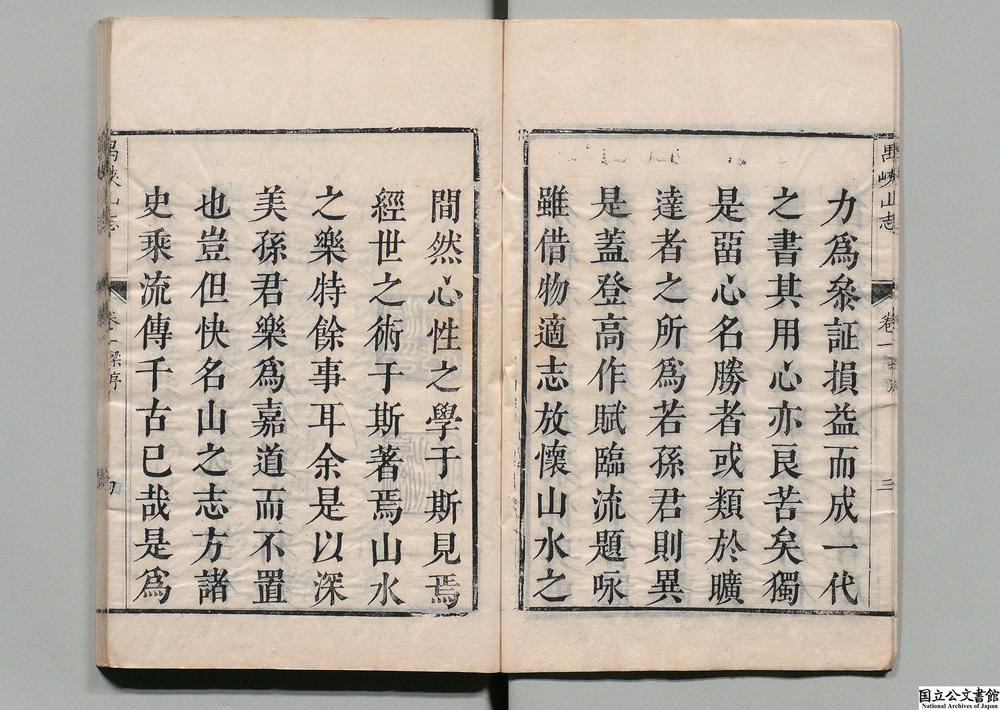 禺峽山志
卷一
三
力爲叅証損益而成一代
之書其用心亦良苦矣獨
是畱心名勝者或類於曠
達者之所爲若孫君則異
是蓋登高作賦臨流題咏
雖借物適志放懷山水之
間然心性之學于斯見焉
經世之術于斯著焉山水
之樂特餘事耳余是以深
美孫君樂爲嘉道而不置
也豈但快名山之志方諸
史乘流傳千古已哉是爲
禺峽山志
卷一梁序
四
国立公文書館
National Archives of Japan